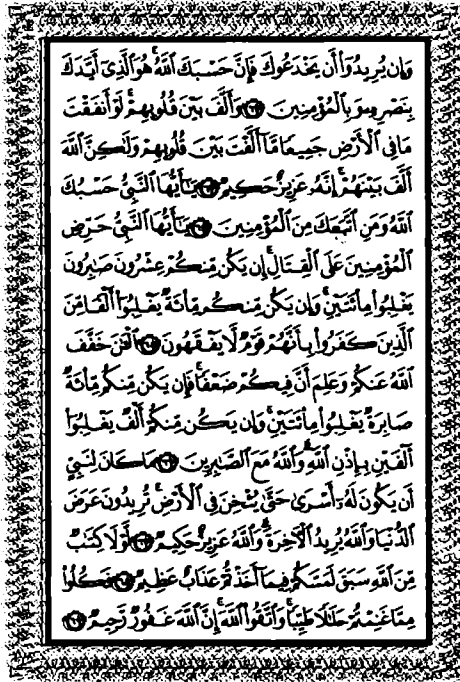 وَإِن يُرِيدُوٓا۟ أَن يَخْدَعُوكَ فَإِنَّ حَسْبَكَ ٱللَّهُ ۚ هُوَ ٱلَّذِىٓ أَيَّدَكَ
بِنَصْرِهِۦ وَبِٱلْمُؤْمِنِينَ ﴿٦٢﴾ وَأَلَّفَ بَيْنَ قُلُوبِهِمْ ۚ لَوْ أَنفَقْتَ
مَا فِى ٱلْأَرْضِ جَمِيعًا مَّآ أَلَّفْتَ بَيْنَ قُلُوبِهِمْ وَلَٰكِنَّ ٱللَّهَ
أَلَّفَ بَيْنَهُمْ ۚ إِنَّهُۥ عَزِيزٌ حَكِيمٌ ﴿٦٣﴾ يَٰٓأَيُّهَا ٱلنَّبِىُّ حَسْبُكَ
ٱللَّهُ وَمَنِ ٱتَّبَعَكَ مِنَ ٱلْمُؤْمِنِينَ ﴿٦٤﴾ يَٰٓأَيُّهَا ٱلنَّبِىُّ حَرِّضِ
ٱلْمُؤْمِنِينَ عَلَى ٱلْقِتَالِ ۚ إِن يَكُن مِّنكُمْ عِشْرُونَ صَٰبِرُونَ
يَغْلِبُوا۟ مِا۟ئَتَيْنِ ۚ وَإِن يَكُن مِّنكُم مِّا۟ئَةٌ يَغْلِبُوٓا۟ أَلْفًا مِّنَ
ٱلَّذِينَ كَفَرُوا۟ بِأَنَّهُمْ قَوْمٌ لَّا يَفْقَهُونَ ﴿٦٥﴾ ٱلْـَٰٔنَ خَفَّفَ
ٱللَّهُ عَنكُمْ وَعَلِمَ أَنَّ فِيكُمْ ضَعْفًا ۚ فَإِن يَكُن مِّنكُم مِّا۟ئَةٌ
صَابِرَةٌ يَغْلِبُوا۟ مِا۟ئَتَيْنِ ۚ وَإِن يَكُن مِّنكُمْ أَلْفٌ يَغْلِبُوٓا۟
أَلْفَيْنِ بِإِذْنِ ٱللَّهِ ۗ وَٱللَّهُ مَعَ ٱلصَّٰبِرِينَ ﴿٦٦﴾ مَا كَانَ لِنَبِىٍّ
أَن يَكُونَ لَهُۥٓ أَسْرَىٰ حَتَّىٰ يُثْخِنَ فِى ٱلْأَرْضِ ۚ تُرِيدُونَ عَرَضَ
ٱلدُّنْيَا وَٱللَّهُ يُرِيدُ ٱلْـَٔاخِرَةَ ۗ وَٱللَّهُ عَزِيزٌ حَكِيمٌ ﴿٦٧﴾ لَّوْلَا كِتَٰبٌ
مِّنَ ٱللَّهِ سَبَقَ لَمَسَّكُمْ فِيمَآ أَخَذْتُمْ عَذَابٌ عَظِيمٌ ﴿٦٨﴾ فَكُلُوا۟
مِمَّا غَنِمْتُمْ حَلَٰلًا طَيِّبًا ۚ وَٱتَّقُوا۟ ٱللَّهَ ۚ إِنَّ ٱللَّهَ غَفُورٌ رَّحِيمٌ ﴿٦٩﴾